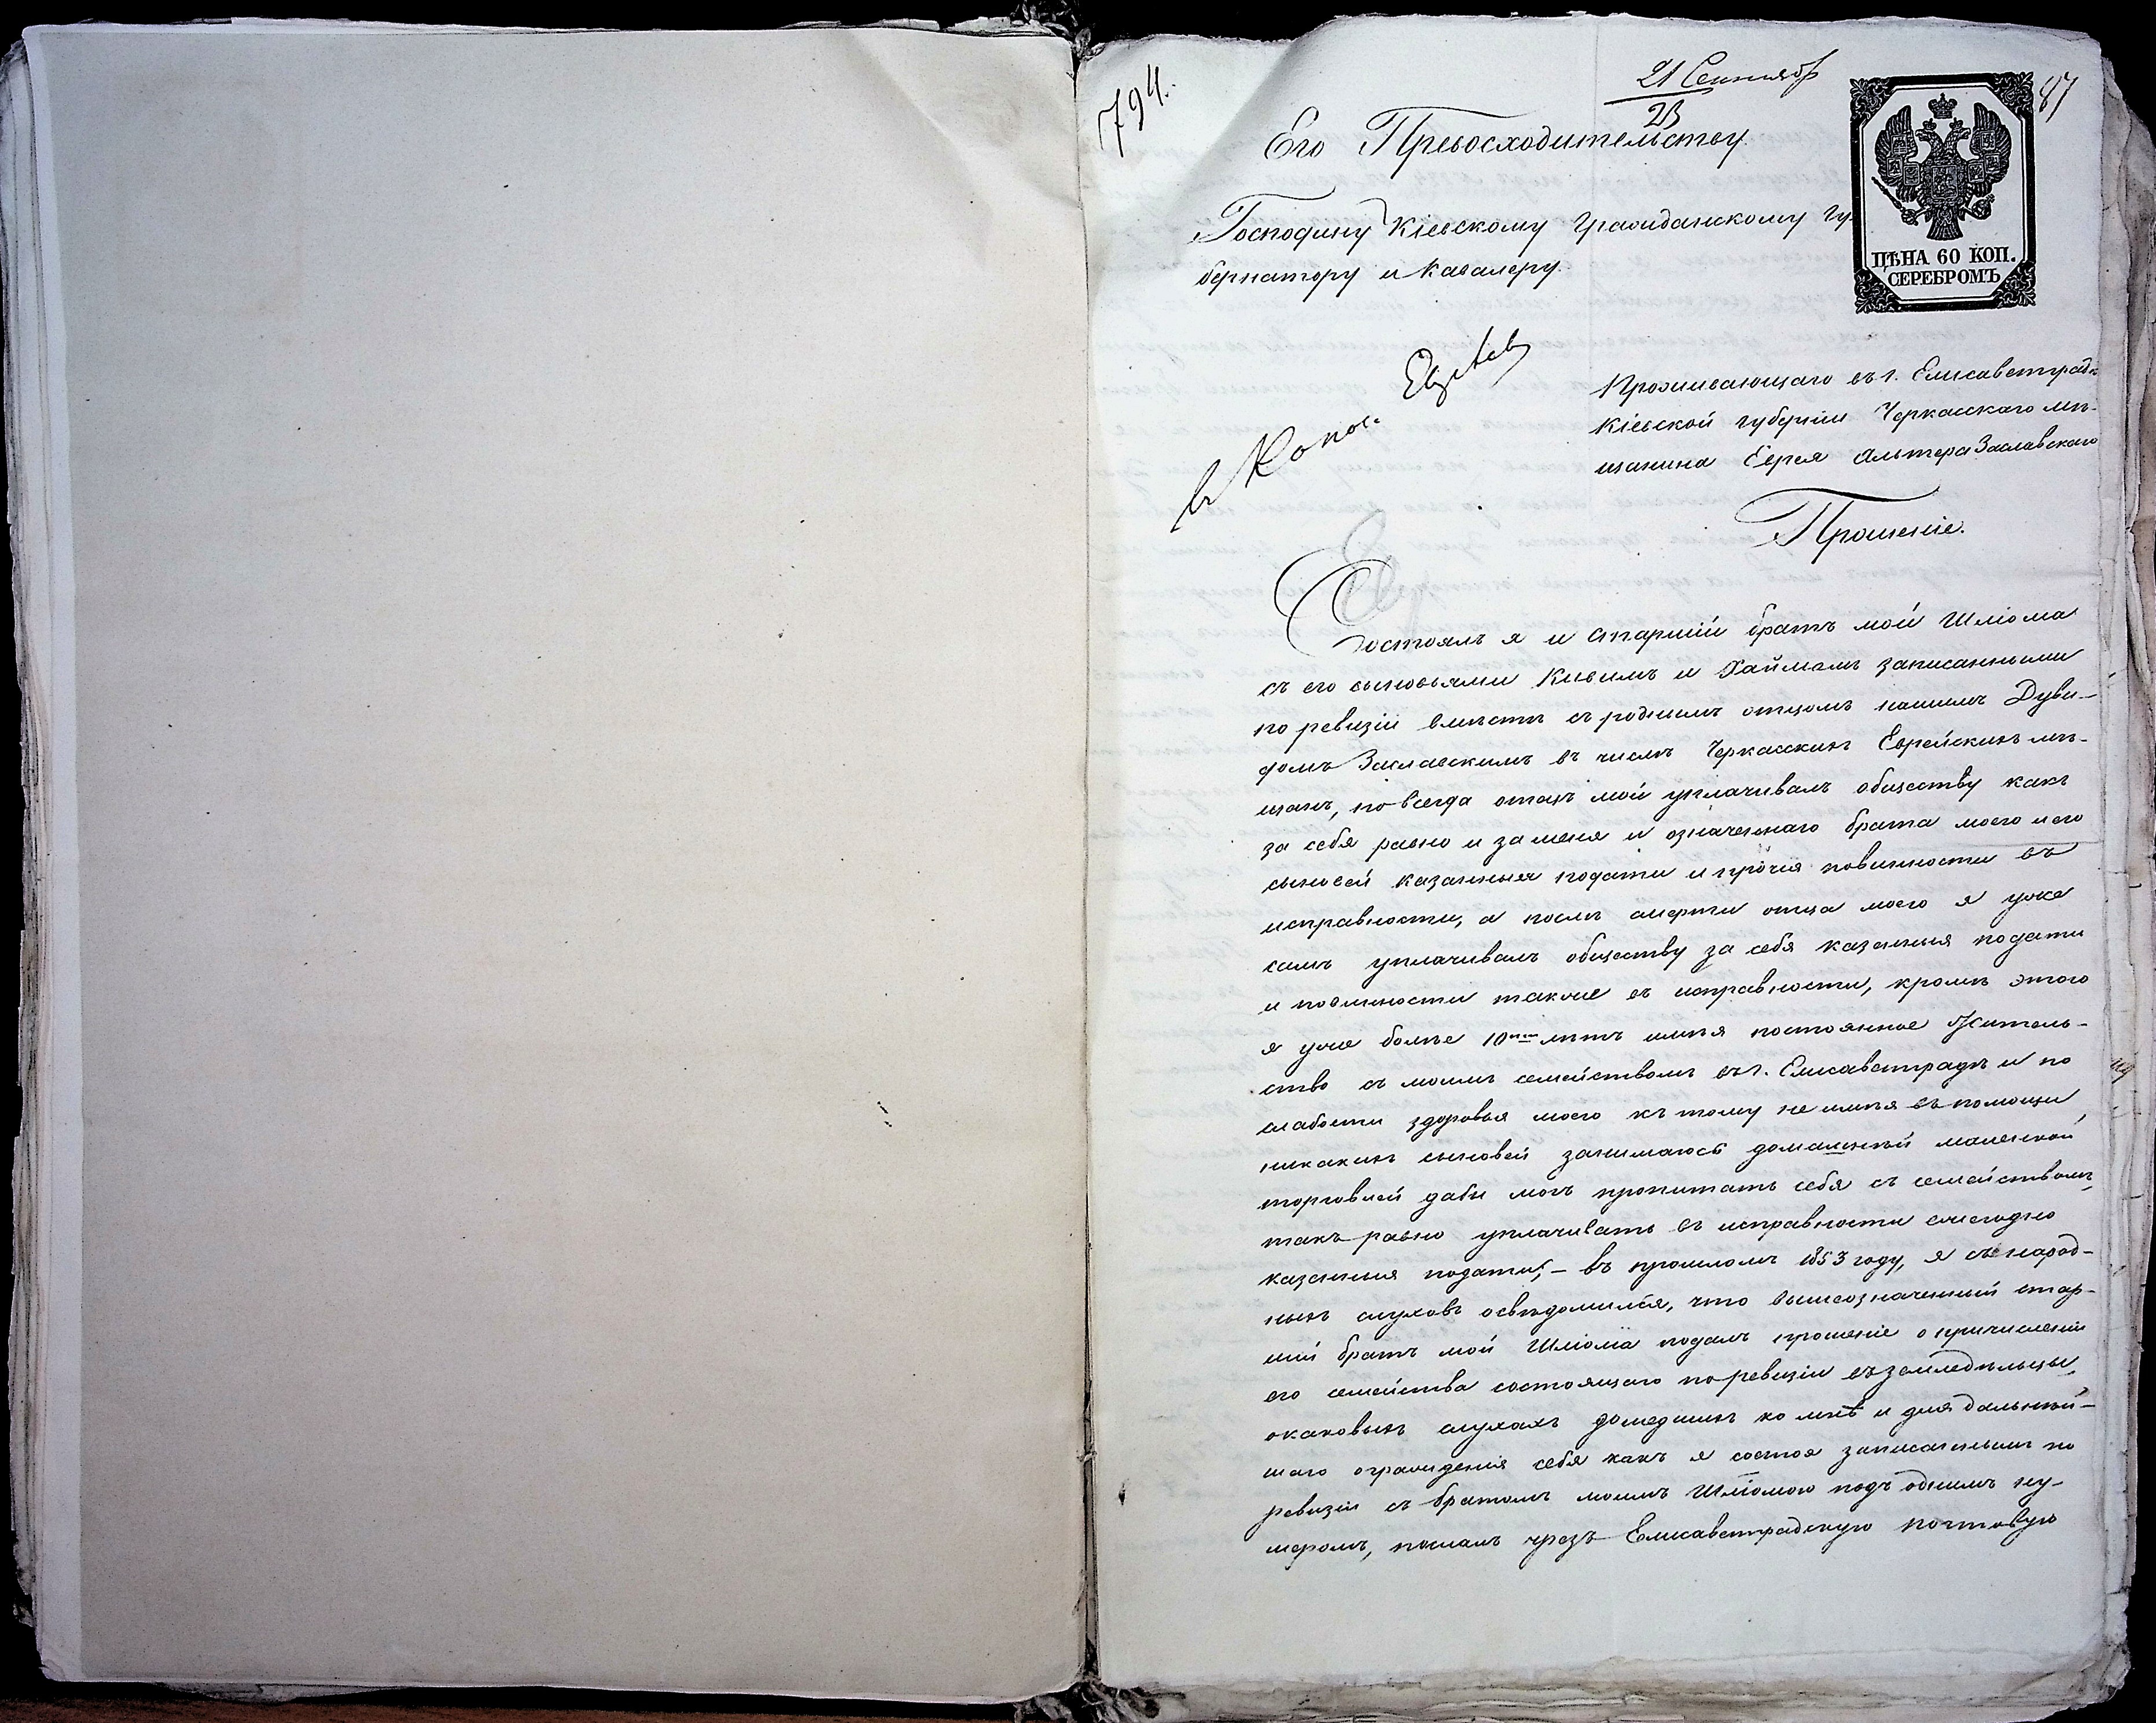 794.
21 Сентябр
23
87
Его Превосходительству
Господину Кіевскому Гражданскому Гу-
бернатору и Кавалеру.
ЦѢНА 60 КОП.
СЕРЕБРОМЪ
Проживающаго въ г. Елисаветградѣ
Кіевской губерніи Черкасскаго мѣ-
щанина Еврея Альтера Заславскаго
Прошеніе.
Состоялъ я и старшій братъ мой Шліома
съ его сыновьями Кивимъ и Хаймомъ записанными
по ревизіи вмѣстѣ съ роднымъ отцомъ нашимъ Дуви-
домъ Заславскимъ въ числѣ Черкасскихъ Еврейскихъ мѣ-
щанъ, но всегда отецъ мой уплачивалъ обществу какъ
за себя равно и за меня и означеннаго брата моего и его
сыновей казенныя подати и прочія повинности въ
исправности, а послѣ смерти отца моего я уже
самъ уплачивалъ обществу за себя казенныя подати
и повинности также въ исправности, кромѣ этого
я уже болѣе 10ти лѣтъ имѣя постоянное жительс-
тво съ моимъ семействомъ въ г. Елисаветградѣ и по
слабости здоровья моего къ тому не имѣя въ помощи
никакихъ сыновей занимаюсь домашней маленкой
торговлей дабы могъ пропитать себя съ семействомъ,
такъ равно уплачивать въ исправности ежегодно
казенныя подати; – въ прошломъ 1853 году, я съ народ-
ныхъ слуховъ освѣдомился, что вышеозначенный стар-
шій братъ мой Шліома подалъ прошеніе о причисленіи
его семейства состоящаго по ревизіи въ земледѣльцы,
о каковыхъ слухахъ дошедшихъ ко мнѣ и для дальнѣй-
шаго огражденія себя какъ я состоя записаннымъ по
ревизіи съ братомъ моимъ Шліомою подъ однимъ ну-
меромъ, послалъ чрезъ Елисаветградскую почтовую